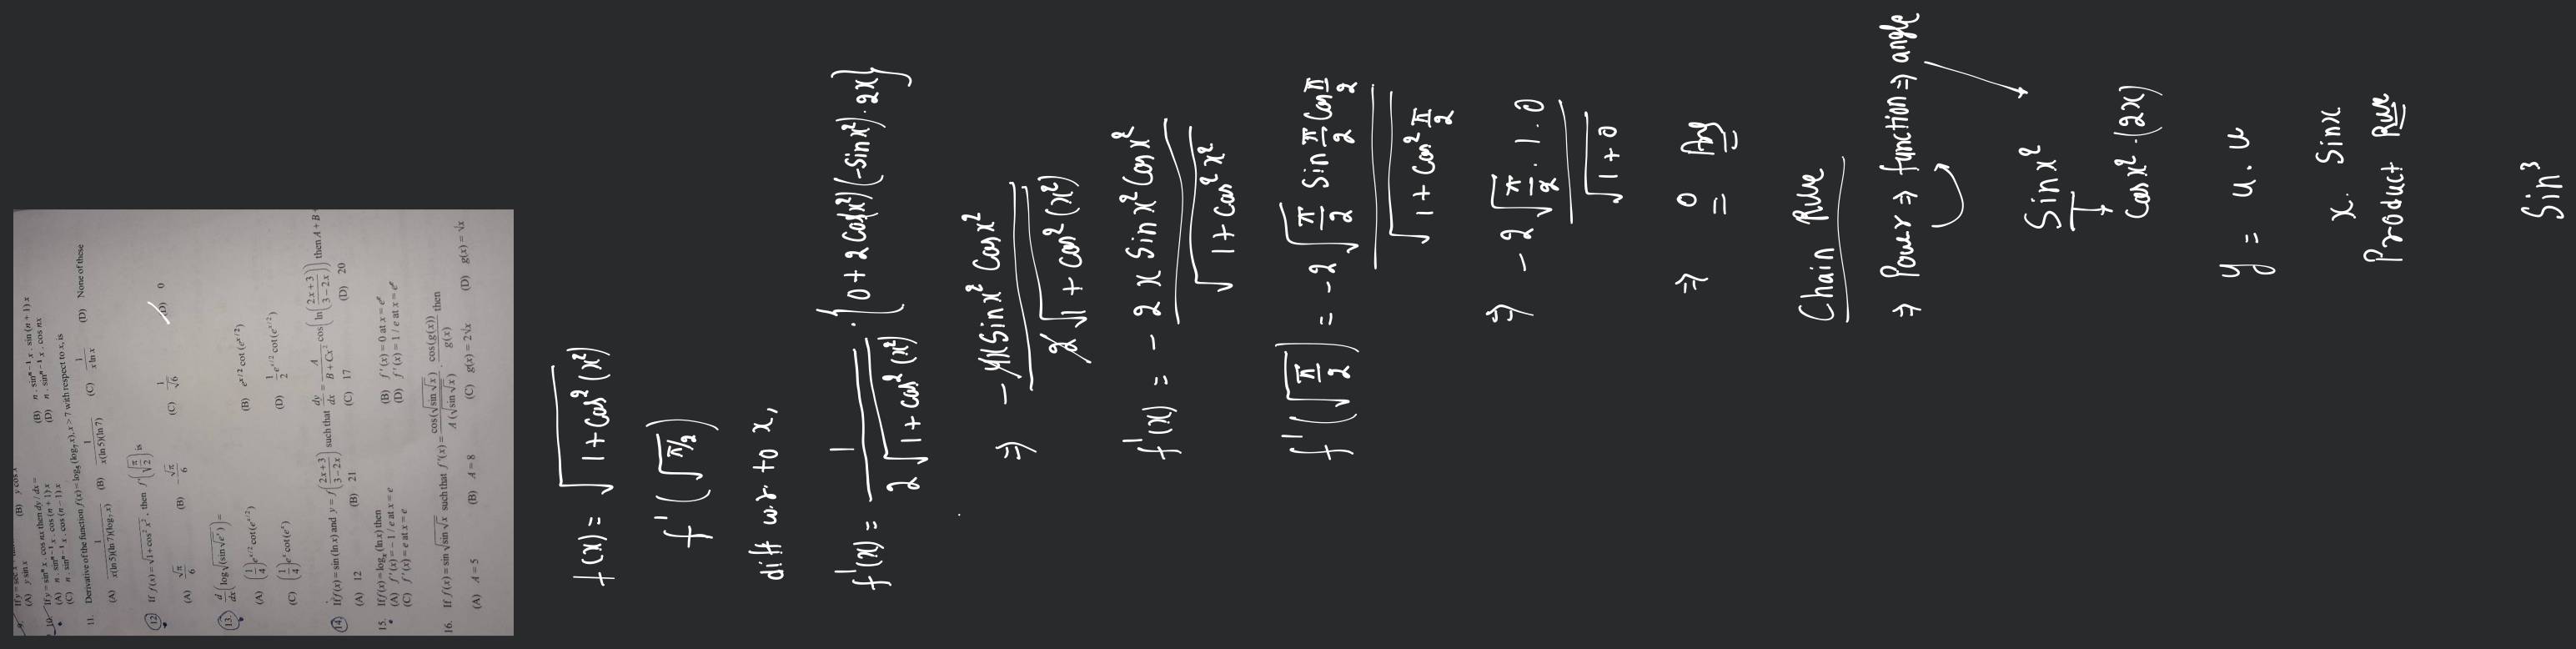 9. If y = sec x
(A) y sin x (B) y cos x
10. If y = sinⁿ x . cos nx then dy / dx =
(A) n . sinⁿ⁻¹ x . cos (n + 1) x (B) n . sinⁿ⁻¹ x . sin (n + 1) x
(C) n . sinⁿ⁻¹ x . cos (n − 1) x (D) n . sinⁿ⁻¹ x . cos nx
11. Derivative of the function f (x) = log₅ (log₇ x), x > 7 with respect to x, is
(A) 1/(x(ln 5)(ln 7)(log₇ x)) (B) 1/(x(ln 5)(ln 7)) (C) 1/(x ln x) (D) None of these
12. If f (x) = √(1 + cos² x²), then f'(√(π/2)) is
(A) √π/6 (B) −√π/6 (C) 1/√6 (D) 0
13. d/dx (log √(sin √eˣ)) =
(A) (1/4) e^(x/2) cot(e^(x/2)) (B) e^(x/2) cot (e^(x/2))
(C) (1/4) eˣ cot(eˣ) (D) 1/2 e^(x/2) cot (e^(x/2))
14. If f (x) = sin (ln x) and y = f((2x + 3)/(3 − 2x)) such that dy/dx = A/(B + Cx²) cos(ln((2x + 3)/(3 − 2x))) then A + B
(A) 12 (B) 21 (C) 17 (D) 20
15. If f (x) = logₓ (ln x) then
(A) f ' (x) = − 1 / e at x = e (B) f ' (x) = 0 at x = e
(C) f ' (x) = e at x = e (D) f ' (x) = 1 / e at x = e
16. If f (x) = sin √(sin √x) such that f '(x) = cos(√(sin √x))/(A (√(sin √x))) . cos(g(x))/g(x) then
(A) A = 5 (B) A = 8 (C) g(x) = 2√x (D) g(x) = √x
f(x) = √(1 + cos²(x²))
f'(√(π/2))
diff w.r. to x,
f'(x) = 1/(2√(1 + cos²(x²))) · {0 + 2cos(x²)(-Sin x²)·2x}
⇒ −4x Sin x² Cos x² / 2√(1 + cos²(x²))
f'(x) = −2x Sin x² Cos x² / √(1 + cos² x²)
f'(√(π/2)) = −2√(π/2) Sin π/2 Cos π/2 / √(1 + cos² π/2)
⇒ −2√(π/2) . 1 . 0 / √(1 + 0)
⇒ 0 Ans
Chain Rule
⇒ Power ⇒ function ⇒ angle
Sin x²
Cos x² · (2x)
y = u . u
x . Sin x
Product Rule
Sin³